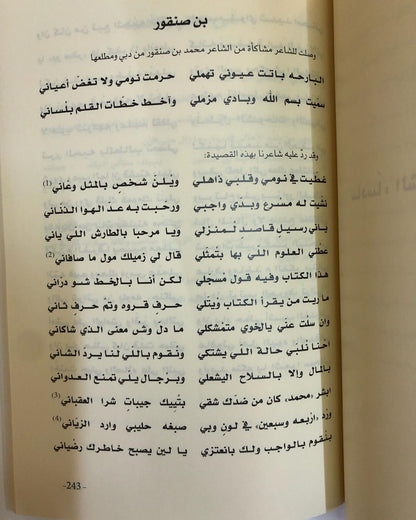 بن صنقور
وصلت للشاعر مشاكاة من الشاعر محمد بن صنقور من دبي ومطلعها
البارحه باتت عيوني تهملي حرمت نومي ولا تغض أعياني
سميت بسم الله وبادي مزملي وآخط خطات القلم بلساني
وقد رد عليه شاعرنا بهذه القصيدة:
غطيت في نومي وقلبي ذاهلي ويلن شخص بالمثل وعاني (1)
نشيت له مسرع وبدي واجبي ورحبت به عد الهوا الذناني
ياني رسيل قاصد لمنزلي ويا مرحبا بالطارش اللي ياني
عطني العلوم اللي بها بتمثلي قال لي زميلك مول ما صافاني (2)
هذا الكتاب وفيه قول مسجلي لكن أنا بالخط شو دراني
ما ريت من يقرا الكتاب ويتلي حرف قروه وتم حرف ثاني
وان سلت عني يالخوي متمشكلي ما دل وش معنى الذي شاكاني
احنا نلبي حالة اللي يشتكي ونقوم باللي لنا يرد الشاني
بالمال والا بالسلاح اليشعلي وبرجال يلي تمنع العدواني
ابشر «محمد» كان من ضدك شقي بتييك جيبات شرا العقباني (3)
ورد «اربعه وسبعين» في لون وبي صبغه حليبي وارد الزياني (4)
بنقوم بالواجب ولك بانعتزي يا لين يصبح خاطرك رضياني
-243-